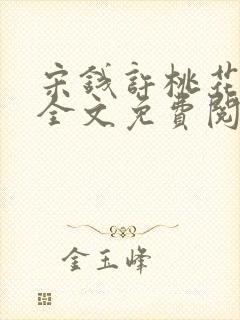 宋钱許桃花
全文免費閱
金玉峰